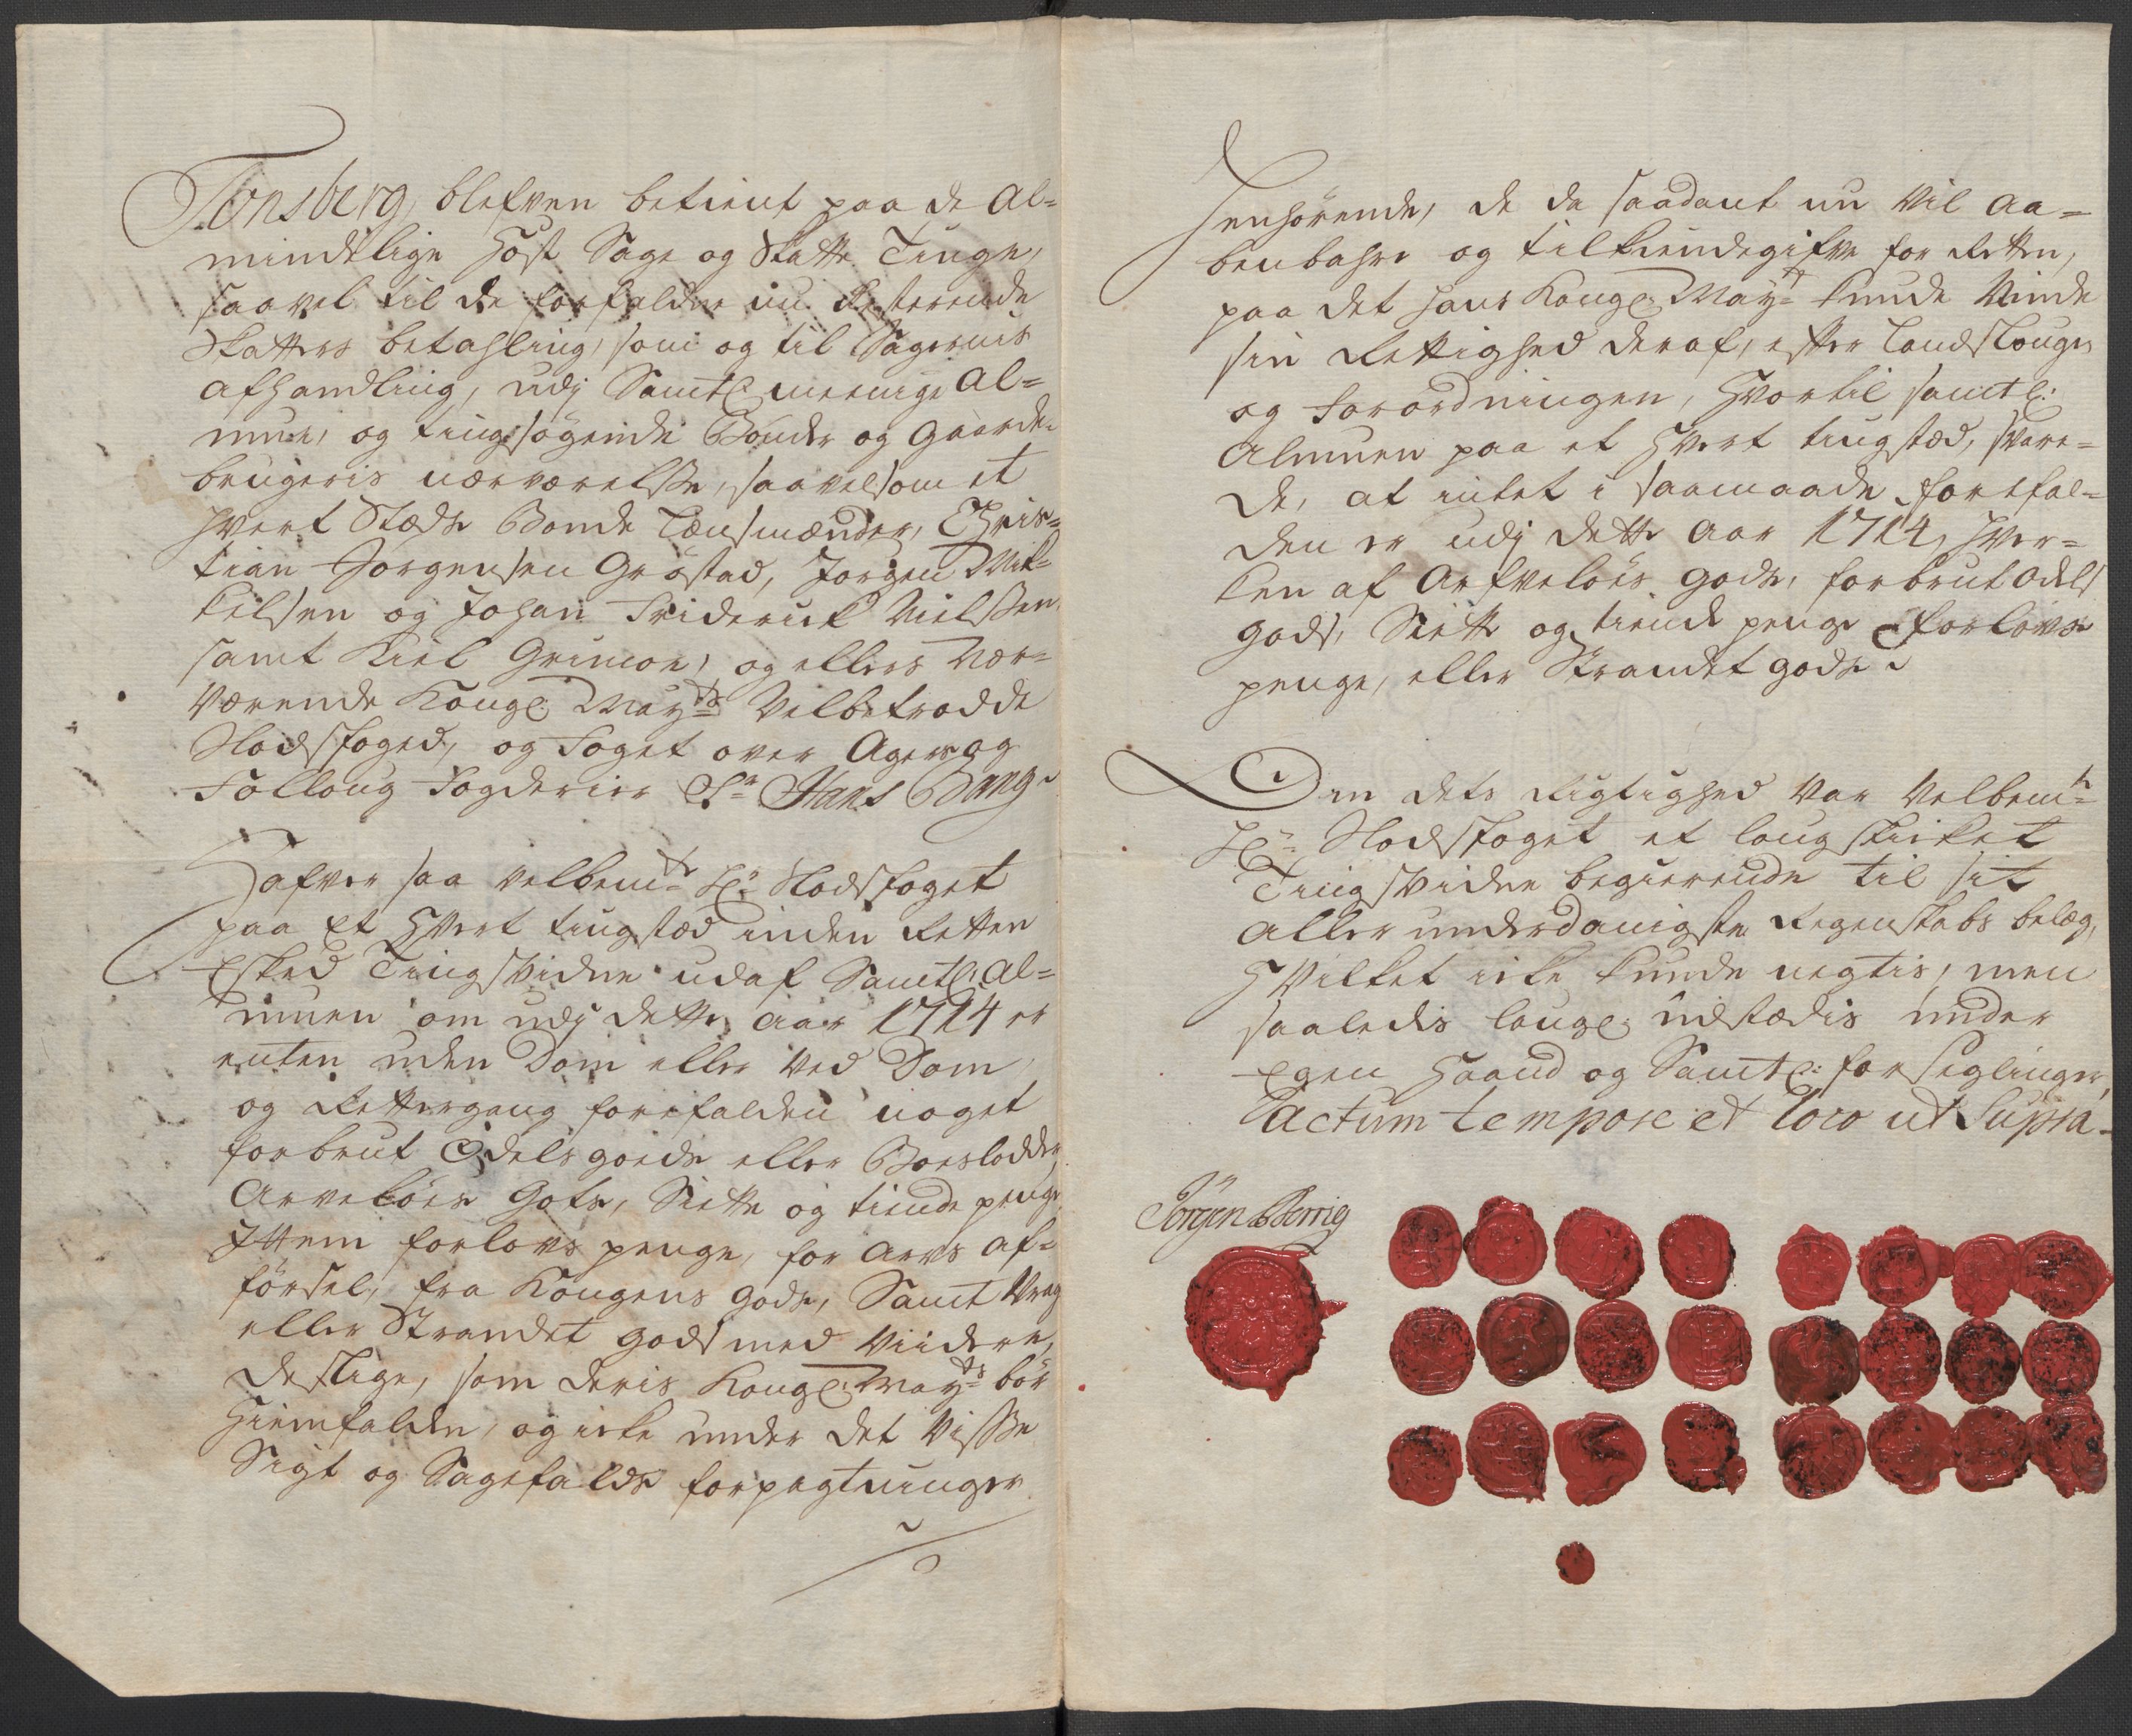 Tonsberg, blefven betient paa de Al=
mindelige Høst Sage og Skatte Tinge,
saavel til de forfaldne nu Resterende
Skatters betahling, som og til Sagernis
afhandling, udj Samtl: meenige Al=
mue, og tingsøgende Bønder og Gaarde
brugeris nærværelsse, saavelsom et
hvert Stæds Bonde Lænsmænder, Chris=
tian Jorgensen Grøstad, Jorgen Mik=
kelsen og Johan Friderick Nielssen
samt Kiel Grimon, og ellers nær=
værende Kongl: Mayts Velbetrodde
Slodsfoged, og Foget over Agers og
Folloug Fogderier Sr Hans Bang
Hafver saa velbemte Hr: Slodsfoget
paa Et hvert tingstæd inden Retten
Esked Tingsvidne udaf Samtl: Al=
muen om udj dette Aar 1714 er
enten uden Dom eller ved Dom
og Rettergang forefalden noget
forbrut Odelsgoeds eller Boeslodder,
Arveløes Gots, Siette og tiende penge,
Ittem forlovs penge, for Arvs af=
førsel, fra Kongens Gods, Samt Vrag
eller Strandet Gods med Viidere,
deslige, som deris Kongl: Mayts bør
Hiemfalden, og icke under det Visse
Sigt og Sagefalds forpagtninger
henhørende, de da saadant nu vil Aa=
benbahre og tilkiendegifve for Retten,
paa det hans Kongl: Mayt kunde Vinde
sin Rettighed deraf, efter Landslougen
og Forordningen, Hvortil samtl:
Almuen paa et hvert tingstæd, svare=
de, at intet i saamaade forefal=
den er udj dette Aar 1714, hver=
ken af Arfveløes Gods, forbrut Odels
Gods, Siette og tiende penge Forlovs
penge, eller Strandet Gods
Om dets Rigtighed var Velbemte
Hr: Slodsfoget et lougskicket
Tingsvidne begierende til sit
Allerunderdanigste Regenskabs belæg,
Hvilket icke kunde negtis, men
saaledis lougl: udstædis under
Egen Haand og Samtl: forseglinger,
Actum tempore et loco ut Supra.
Jörgen Werrig